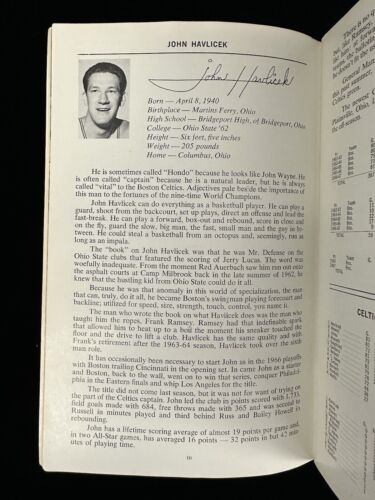 JOHN HAVLICEK
John Havlicek
Born — April 8, 1940
Birthplace — Martins Ferry, Ohio
High School — Bridgeport High, of Bridgeport, Ohio
College — Ohio State '62
Height — Six feet, five inches
Weight — 205 pounds
Home — Columbus, Ohio
He is sometimes called "Hondo" because he looks like John Wayne. He
is often called "captain" because he is a natural leader, but he is always
called "vital" to the Boston Celtics. Adjectives pale beside the importance of
this man to the fortunes of the nine-time World Champions.
John Havlicek can do everything as a basketball player. He can play a
guard, shoot from the backcourt, set up plays, direct an offense and lead the
fast-break. He can play a forward, box-out and rebound, score in close and
on the fly, guard the slow, big man, the fast, small man and the guy in be-
tween. He could steal a basketball from an octopus and, seemingly, run as
long as an impala.
The "book" on John Havlicek was that he was Mr. Defense on the
Ohio State clubs that featured the scoring of Jerry Lucas. The word was
woefully inadequate. From the moment Red Auerbach saw him run out onto
the asphalt courts at Camp Milbrook back in the late summer of 1962, he
knew that the hustling kid from Ohio was something else.
Because he was that anomaly in this world of specialization, the man
that can, truly, do it all, he became Boston's swingman playing forecourt and
backline; utilized for speed, size, strength, touch, control, you name it.
The man who wrote the book on what Havlicek does was the man who
taught him the ropes, Frank Ramsey. Ramsey had that indefinable spark
that allowed him to heat up to a boil the moment his sneaker touched the
floor and the drive to lift a club. Havlicek has the same quality and with
Frank's retirement after the 1963-64 season, Havlicek took over the sixth
man role.
It has occasionally been necessary to start John as in the 1966 playoffs
with Boston trailing Cincinnati in the opening set. In came John as a starter
and Boston, back to the wall, went on to win that series, conquer Philadel-
phia in the Eastern finals and whip Los Angeles for the title.
The title did not come last season, but it was not for want of trying on
the part of the Celtics captain. John led the club in points scored with 1,733,
field goals made with 684, free throws made with 365 and was second to
Russell in minutes played and third behind Russ and Bailey Howell in
rebounding.
John has a lifetime scoring average of almost 19 points per game and,
in two All-Star games, has averaged 16 points — 32 points in but 42 min-
utes of playing time.
10
CELT